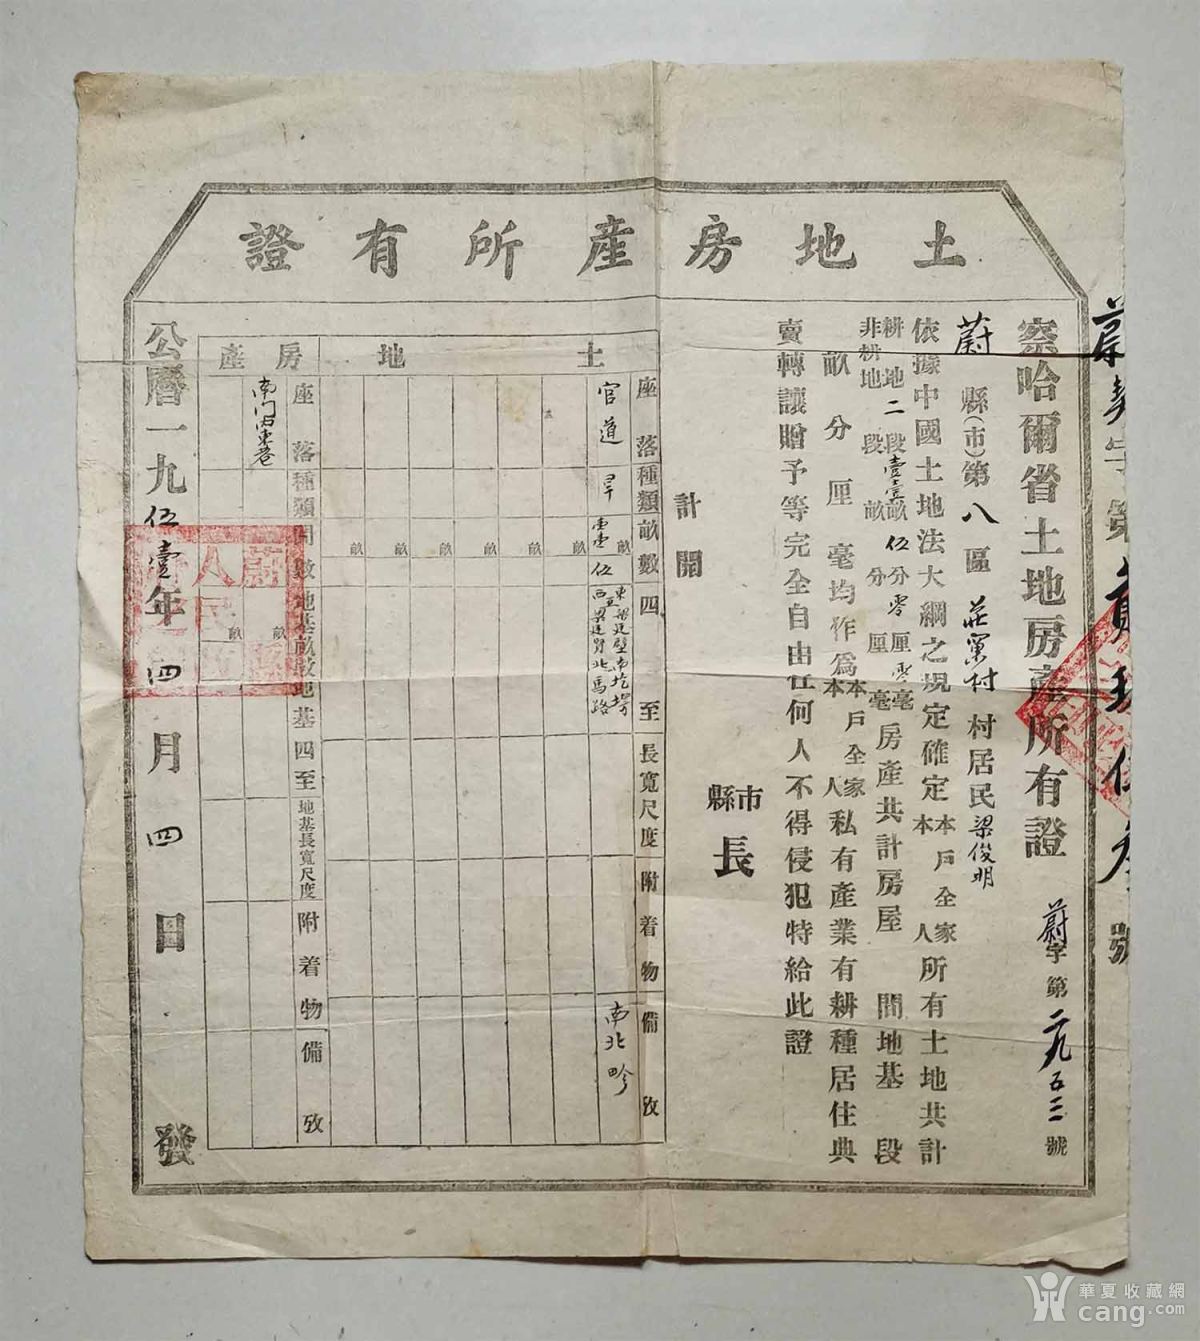 土地房産所有證
察哈爾省土地房産所有證
蔚字第二九五三號
蔚縣(市)第八區莊窠村村居民梁俊明
依據中國土地法大綱之規定確定本戶全家本人所有土地共計
耕地二段壹壹畝伍分零厘零毫
非耕地段畝分厘毫
房產共計房屋間地基段
畝分厘毫均作為本戶全家本人私有產業有耕種居住典
賣轉讓贈予等完全自由任何人不得侵犯特給此證
計開
縣市長
土地
座落種類畝數四至長寬尺度附着物備攷
官道
旱
畝
伍
南北畛
畝
畝
畝
畝
畝
畝
房產
座落種類間數地基畝數地基四至地基長寬尺度附着物備攷
畝
畝
公曆一九伍壹年四月四日發
華夏收藏網
cang.com